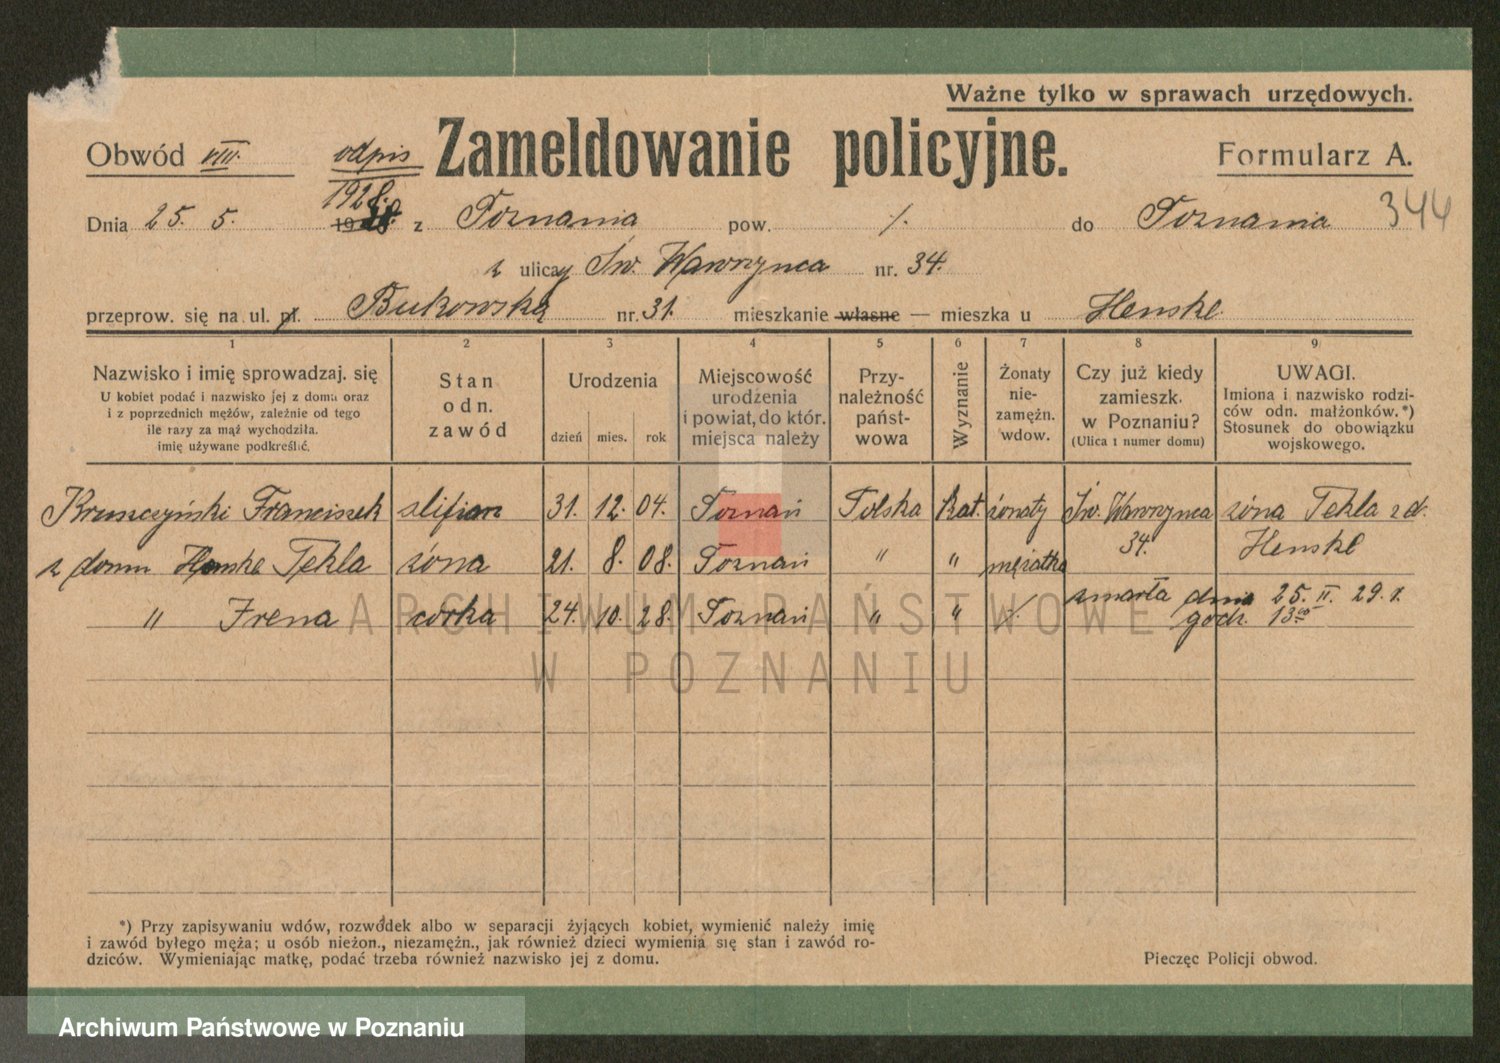 Ważne tylko w sprawach urzędowych.
Obwód VIII. odpis Zameldowanie policyjne. Formularz A.
1928.
Dnia 25. 5. 19 z Poznania pow. ·/. do Poznania 344
z ulicy Św. Wawrzynca nr. 34.
przeprow. się na ul. pl. Bukowską nr. 31. mieszkanie własne — mieszka u Henske
1 2 3 4 5 6 7 8 9
Nazwisko i imię sprowadzaj. się
U kobiet podać i nazwisko jej z domu oraz
i z poprzednich mężów, zależnie od tego
ile razy za mąż wychodziła.
imię używane podkreślić.
Stan
odn.
zawód
Urodzenia
dzień mies. rok
Miejscowość
urodzenia
i powiat, do któr.
miejsca należy
Przy-
należność
państ-
wowa
Wyznanie
Żonaty
nie-
zamężn.
wdow.
Czy już kiedy
zamieszk.
w Poznaniu?
(Ulica i numer domu)
UWAGI.
Imiona i nazwisko rodzi-
ców odn. małżonków.*)
Stosunek do obowiązku
wojskowego.
Kruszczyński Franciszek slifierz 31. 12. 04. Poznań Polska Kat. żonaty Św. Wawrzynca żóna Tekla z d.
34. Henske
z domu Henske Tekla żóna 21. 8. 08. Poznań " " mężatka
zmarła dnia 25. II. 29. r.
" Irena corka 24. 10. 28. Poznań " " ·/. godz. 13⁰⁰
ARCHIWUM PAŃSTWOWE
W POZNANIU
*) Przy zapisywaniu wdów, rozwódek albo w separacji żyjących kobiet, wymienić należy imię
i zawód byłego męża; u osób nieżon., niezamężn., jak również dzieci wymienia się stan i zawód ro-
dziców. Wymieniając matkę, podać trzeba również nazwisko jej z domu.
Pieczęc Policji obwod.
Archiwum Państwowe w Poznaniu